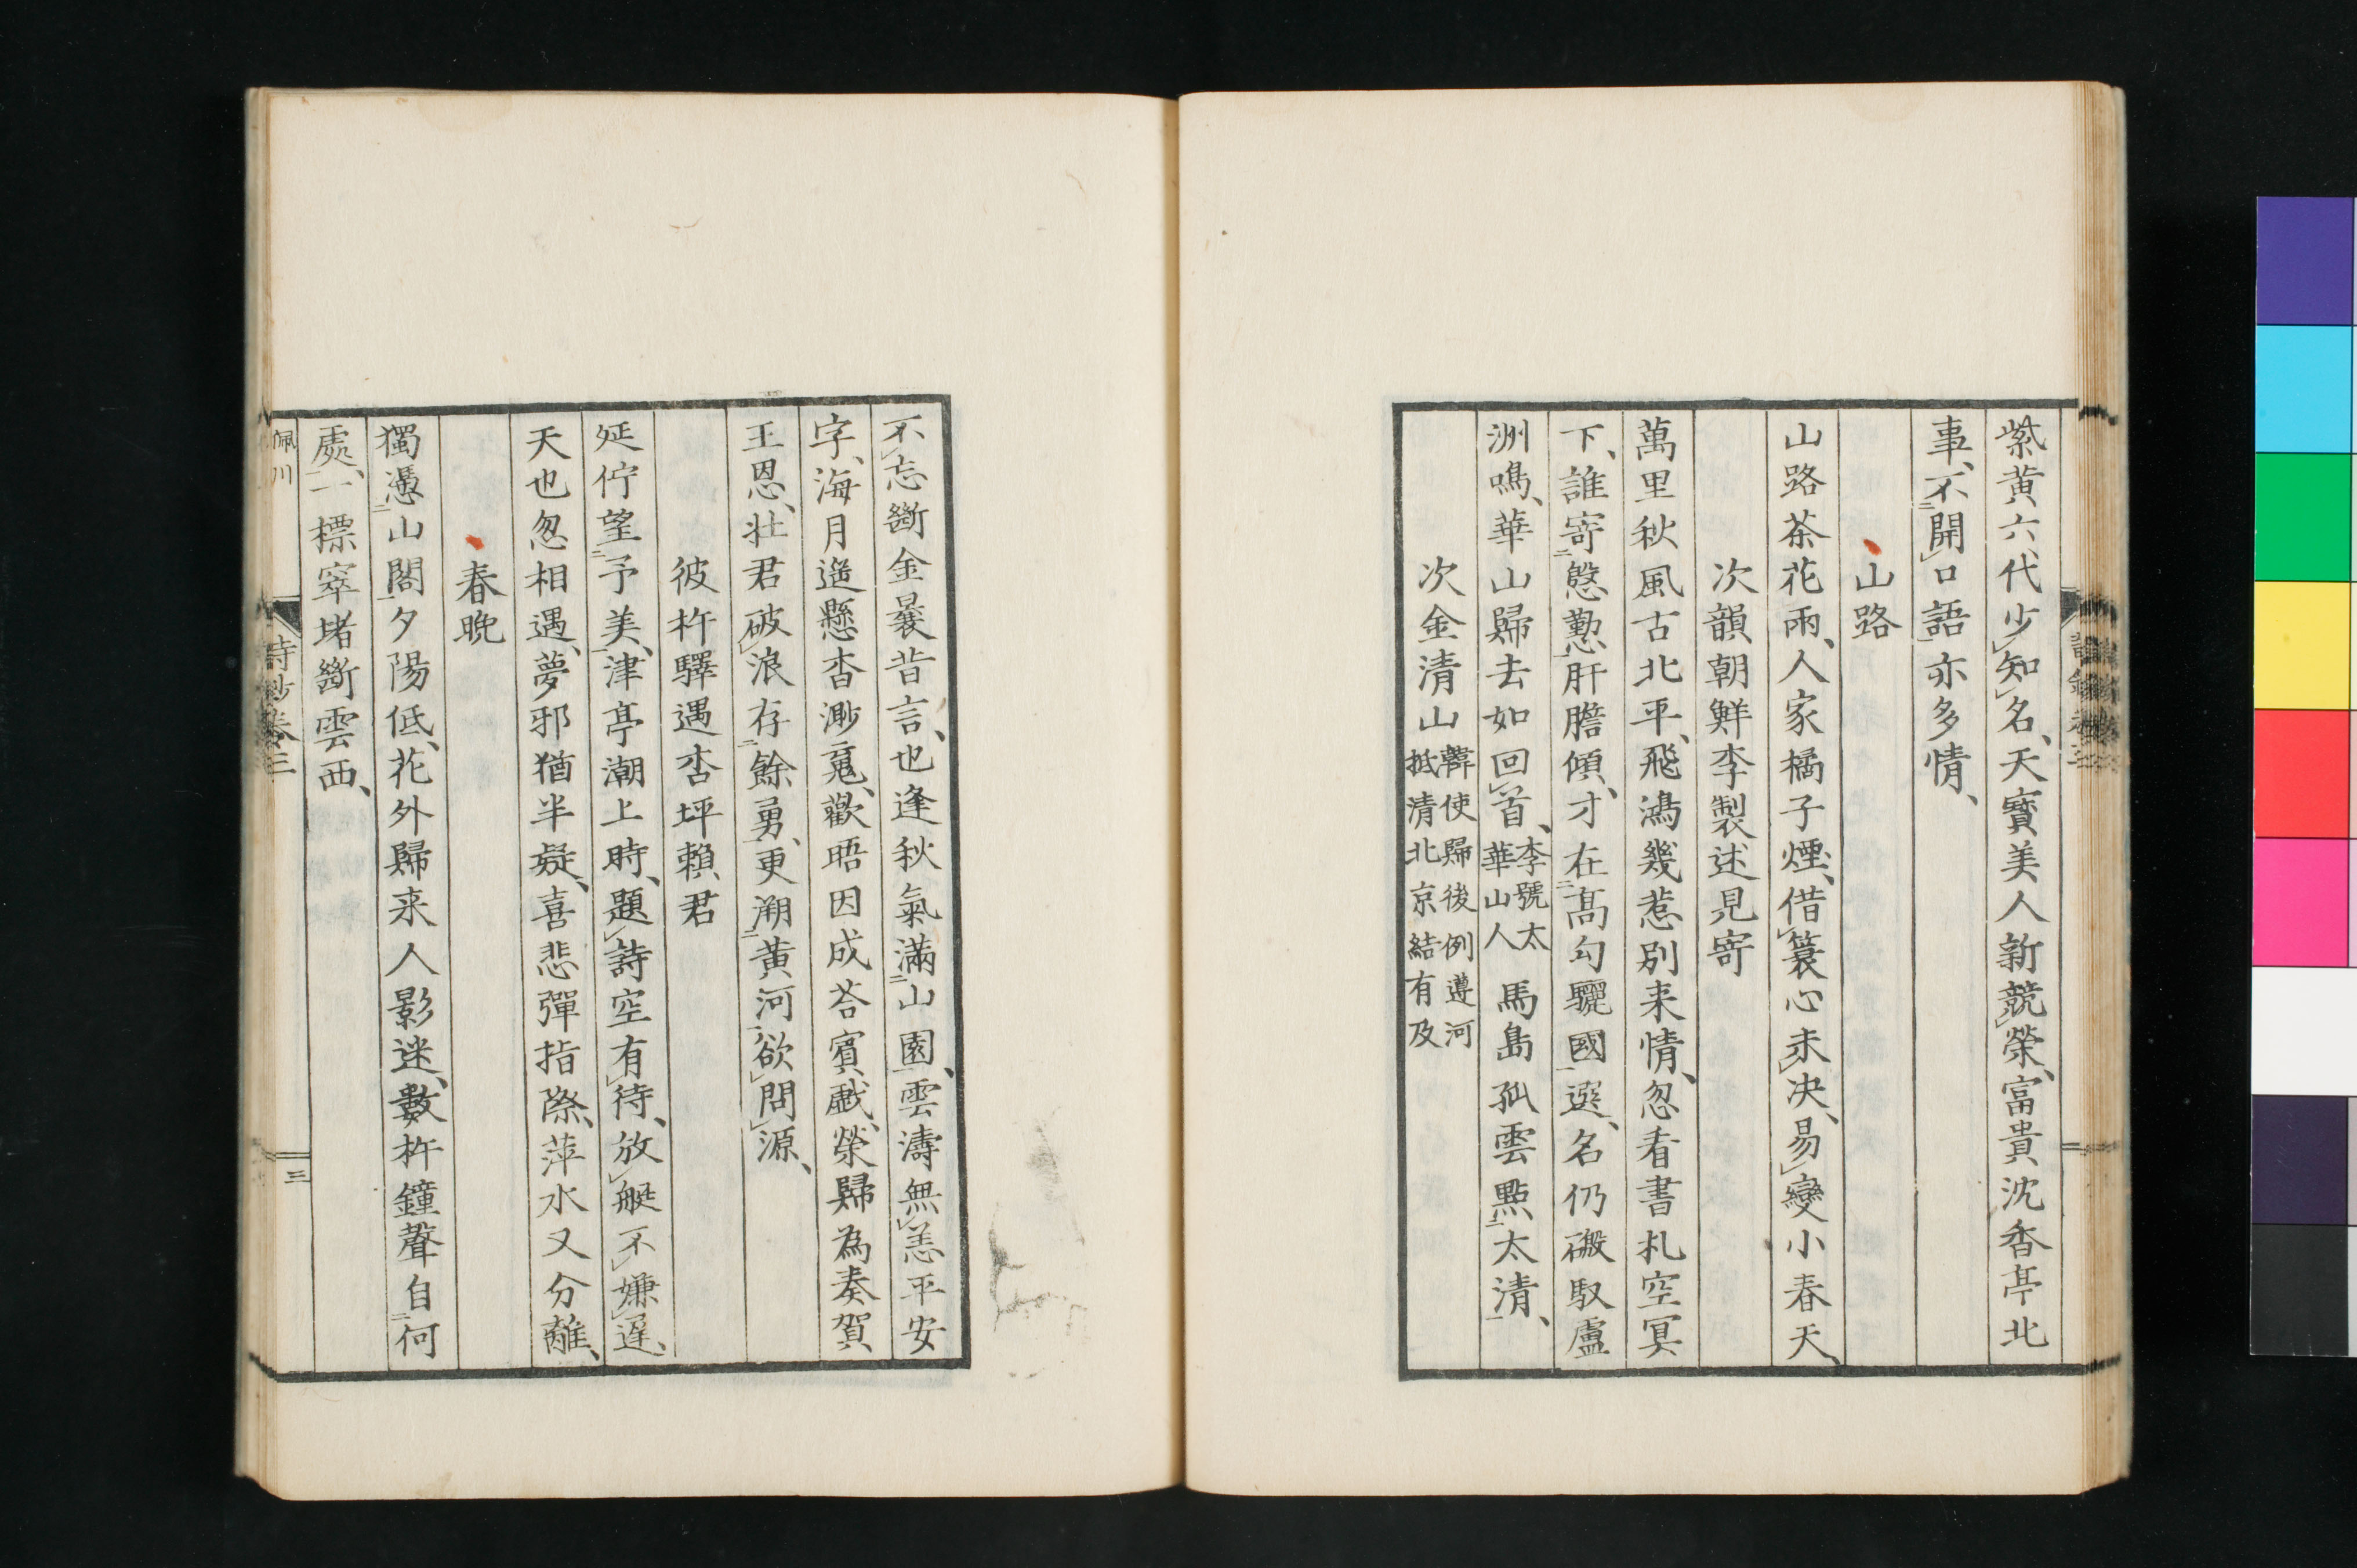 紫黄六代少知名、天寶美人新競榮、富貴沈香亭北
事、不開口語亦多情、
山路
山路茶花雨、人家橘子煙、借簑心未決、易變小春天、
次韻朝鮮李製述見寄
萬里秋風古北平、飛鴻幾惹別来情、忽看書札空冥
下、誰寄慇懃肝膽傾、才在高勾驪國選、名仍礟馭盧
洲鳴、華山歸去如回首、李號太華山人 馬島孤雲點太清、
次金清山韓使歸後例遵河抵清北京結有及
不忘斷金曩昔言、也逢秋氣滿山園、雲濤無恙平安
字、海月遥懸杳渺䰟、歡晤因成荅賓戱、榮歸為奏賀
王恩、壮君破浪存餘勇、更溯黄河欲問源、
彼杵驛遇杏坪賴君
延佇望予美、津亭潮上時、題詩空有待、放艇不嫌遅、
天也忽相遇、夢邪猶半疑、喜悲彈指際、萍水又分離、
春晩
獨憑山閣夕陽低、花外歸来人影迷、數杵鐘聲自何
處、一標窣堵斷雲西、
佩川
詩鈔卷三
三